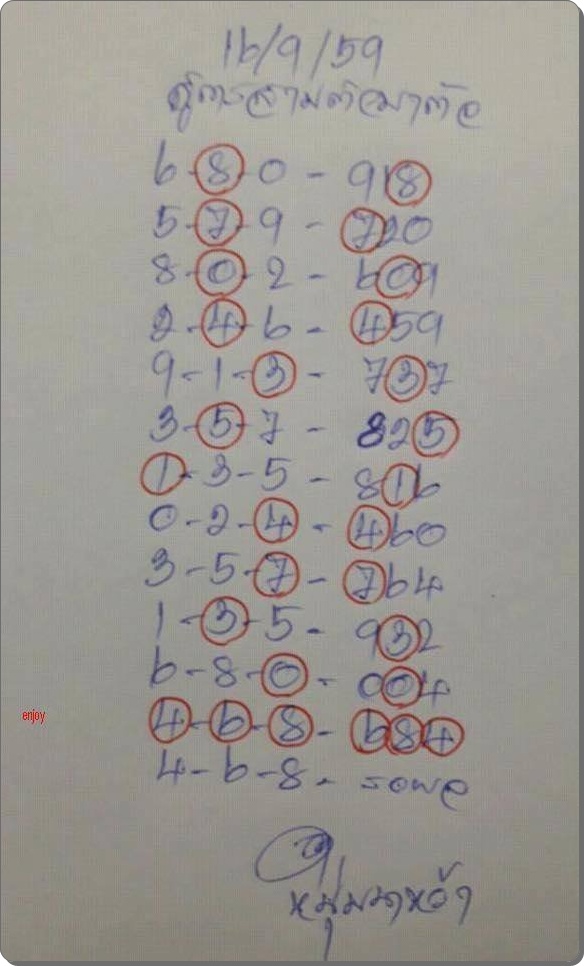 16/9/59
สูตรสามตัวมาตัว
6-8-0 - 918
5-7-9 - 720
8-0-2 - 609
2-4-6 - 459
9-1-3 - 737
3-5-7 - 825
1-3-5 - 816
0-2-4 - 460
3-5-7 - 764
1-3-5 - 932
6-8-0 - 004
enjoy
4-6-8 - 684
4-6-8 - รอผล